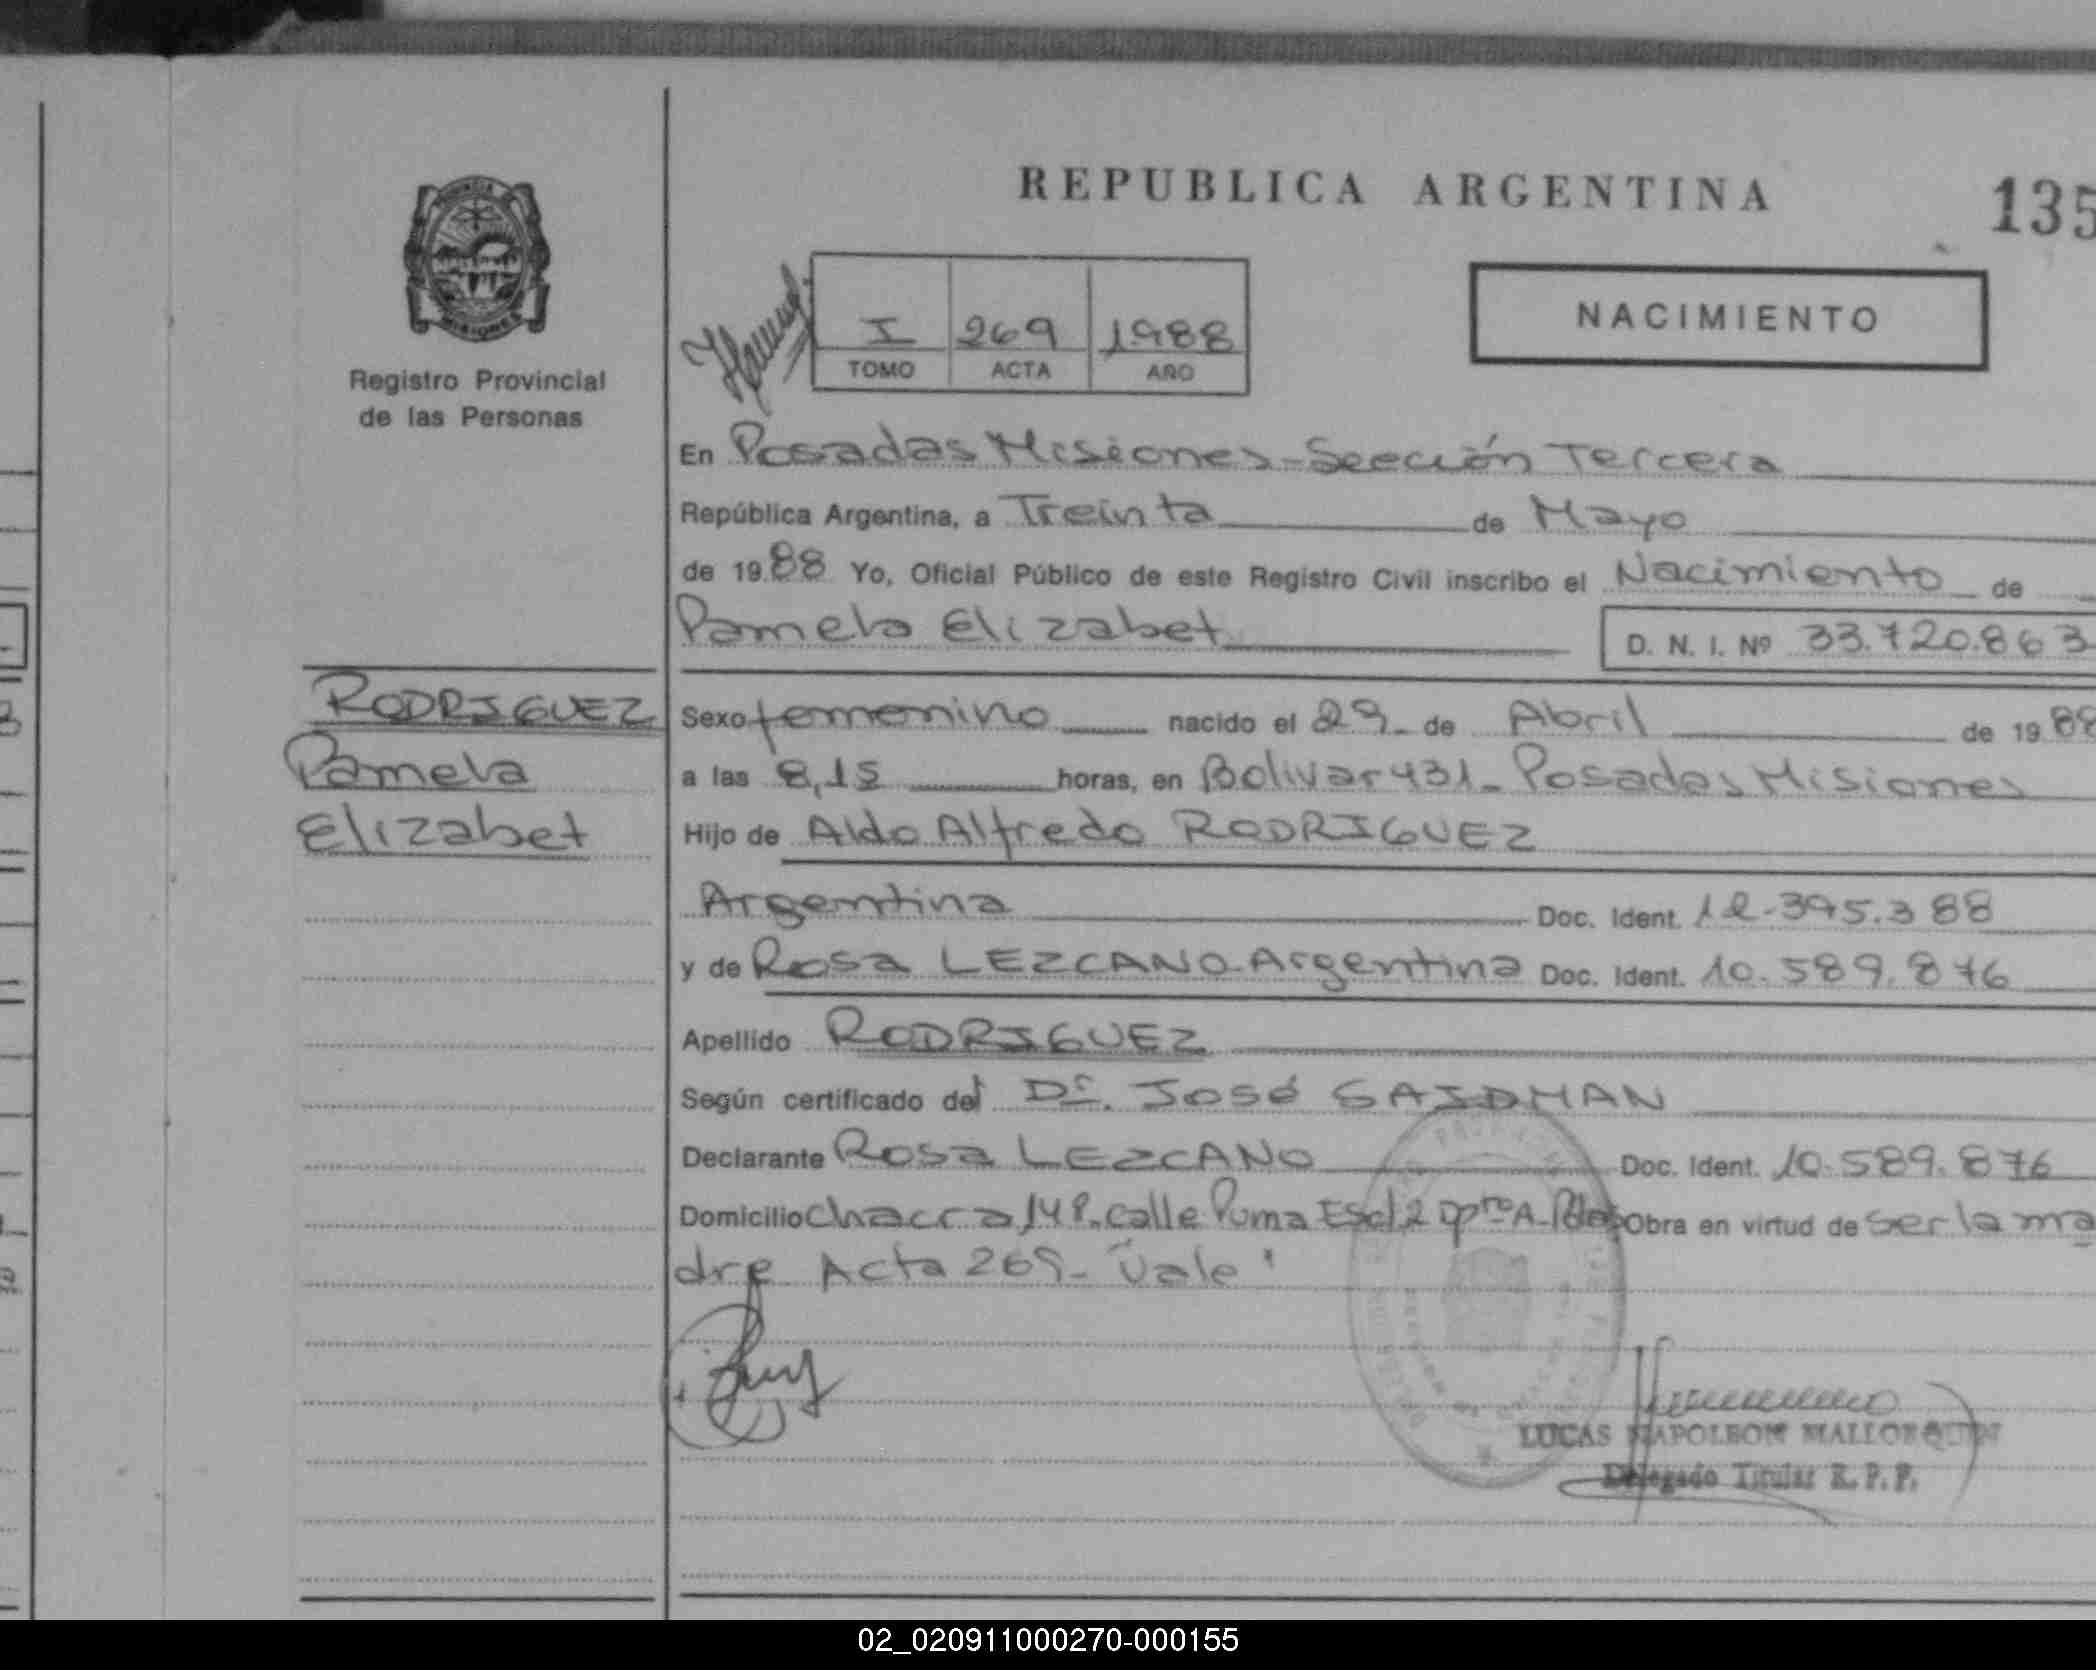 REPUBLICA ARGENTINA
135
NACIMIENTO
I 269 1988
TOMO ACTA AÑO
MISIONES
Registro Provincial
de las Personas
En Posadas Misiones-Sección Tercera
República Argentina, a Treinta de Mayo
de 1988 Yo, Oficial Público de este Registro Civil inscribo el Nacimiento de
Pamela Elizabet D. N. I. Nº 33.720.863
RODRIGUEZ
Pamela
Elizabet
Sexo femenino nacido el 29 de Abril de 1988
a las 8,15 horas, en Bolivar 431- Posadas Misiones
Hijo de Aldo Alfredo RODRIGUEZ
Argentina Doc. Ident. 12.395.388
y de Rosa LEZCANO-Argentina Doc. Ident. 10.589.876
Apellido RODRIGUEZ
Según certificado del Dr. José SAIDMAN
Declarante Rosa LEZCANO Doc. Ident. 10.589.876
Domicilio Chacra calle Puma Esc 2 Dpto A- Pdas Obra en virtud de ser la ma
dre Acta 269- "Vale"
LUCAS NAPOLEON MALLORQUIN
Delegado Titular R. P. P.
02_020911000270-000155